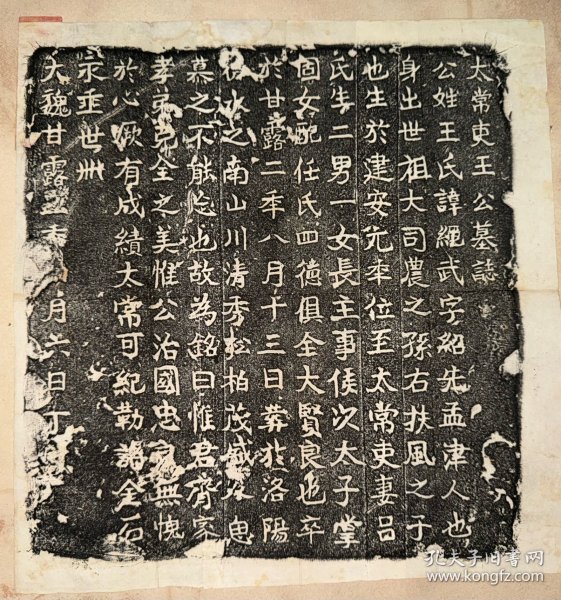 太常吏王公墓誌
公姓王氏諱繩武字紹先孟津人也
身出世祖大司農之孫右扶風之子
也生於建安元年位至太常吏妻呂
氏生二男一女長主事侯次太子掌
固女配任氏四德俱全大賢良也卒
於甘露二年八月十三日葬於洛陽
水之南山川清秀松柏茂盛 思
慕之不能忘也故為銘曰惟君齊家
孝弟克全之美惟公治國忠 無愧
於心厥有成績太常可紀勒 金石
永垂世卌
大魏甘露 月六日丁
孔夫子旧书网
www.kongfz.com